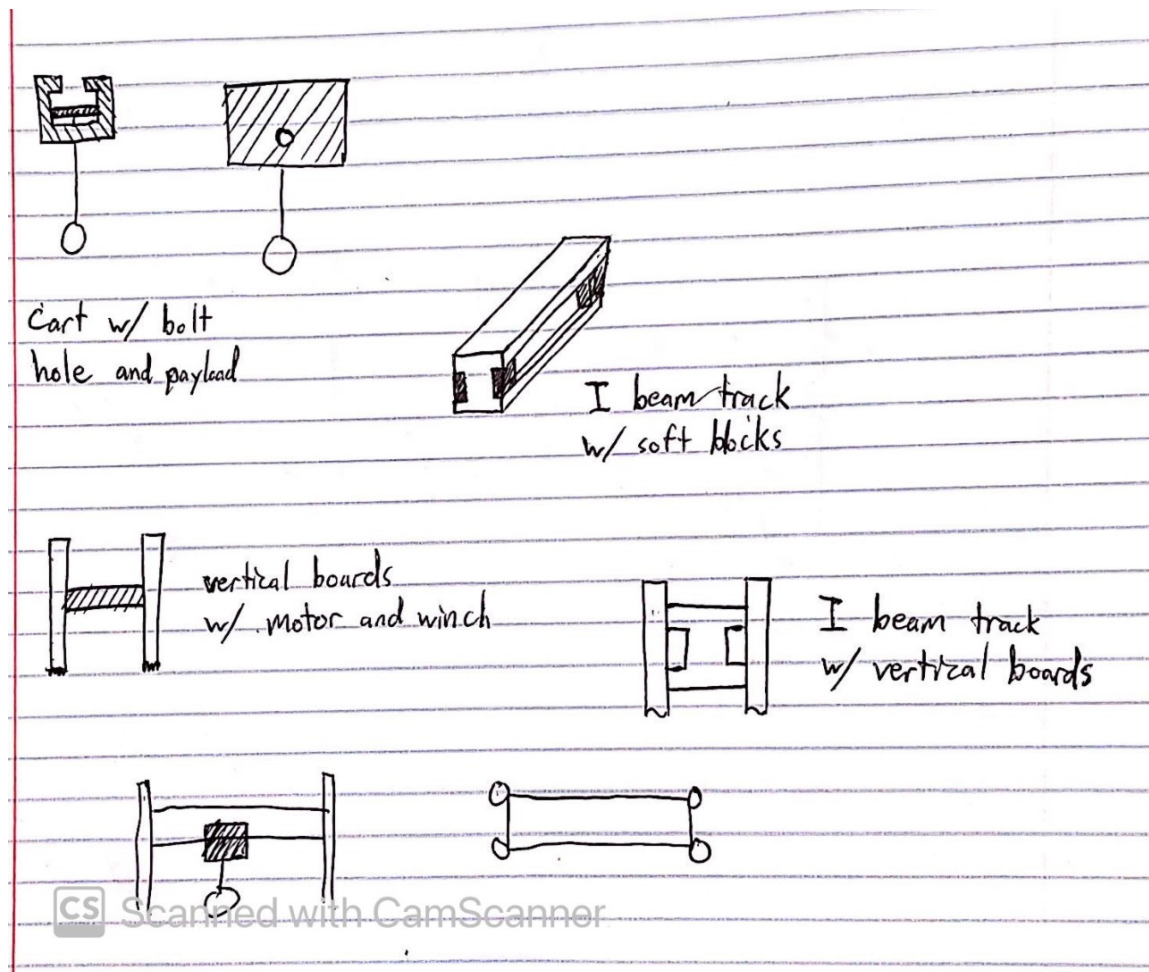 cart w/ bolt
hole and payload
I beam track
w/ soft blocks
vertical boards
w/ motor and winch
I beam track
w/ vertical boards
CS Scanned with CamScanner